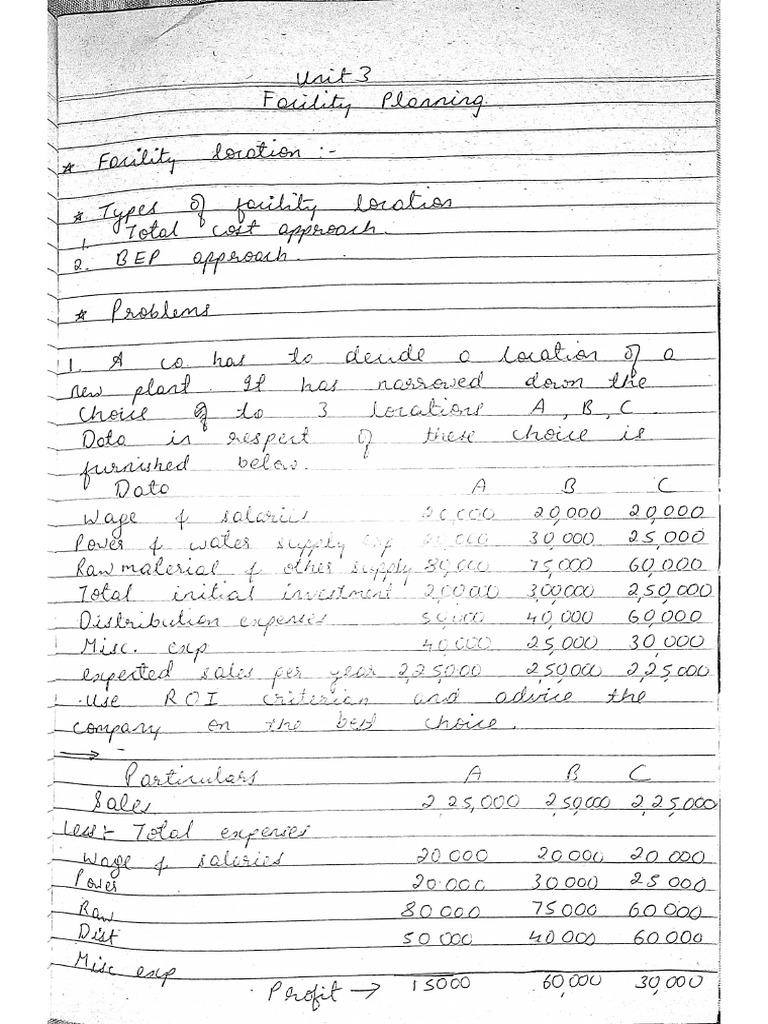 Unit 3
Facility Planning
* Facility location :-
* Types of facility location
1. Total cost approach.
2. BEP approach.
* Problems
1. A co has to decide a location of a
new plant. It has narrowed down the
choice of to 3 locations A, B, C
Data in respect of these choice is
furnished below.
Data A B C
Wage & salaries 20,000 20,000 20,000
Power & water supply exp 30,000 25,000
Raw material & other supply 80,000 75,000 60,000
Total initial investment 2,00,000 3,00,000 2,50,000
Distribution expenses 50,000 40,000 60,000
Misc. exp 40,000 25,000 30,000
expected sales per year 2,25,000 2,50,000 2,25,000
.Use ROI criterian and advice the
company on the best choice.
⟹ -
Particulars A B C
Sales 2,25,000 2,50,000 2,25,000
Less:- Total expenses
Wage & salaries 20 000 20 000 20 000
Power 20.000 30 000 25 000
Raw 80 000 75 000 60 000
Dist 50 000 40 000 60 000
Misc exp
Profit → 15000 60,000 30,000